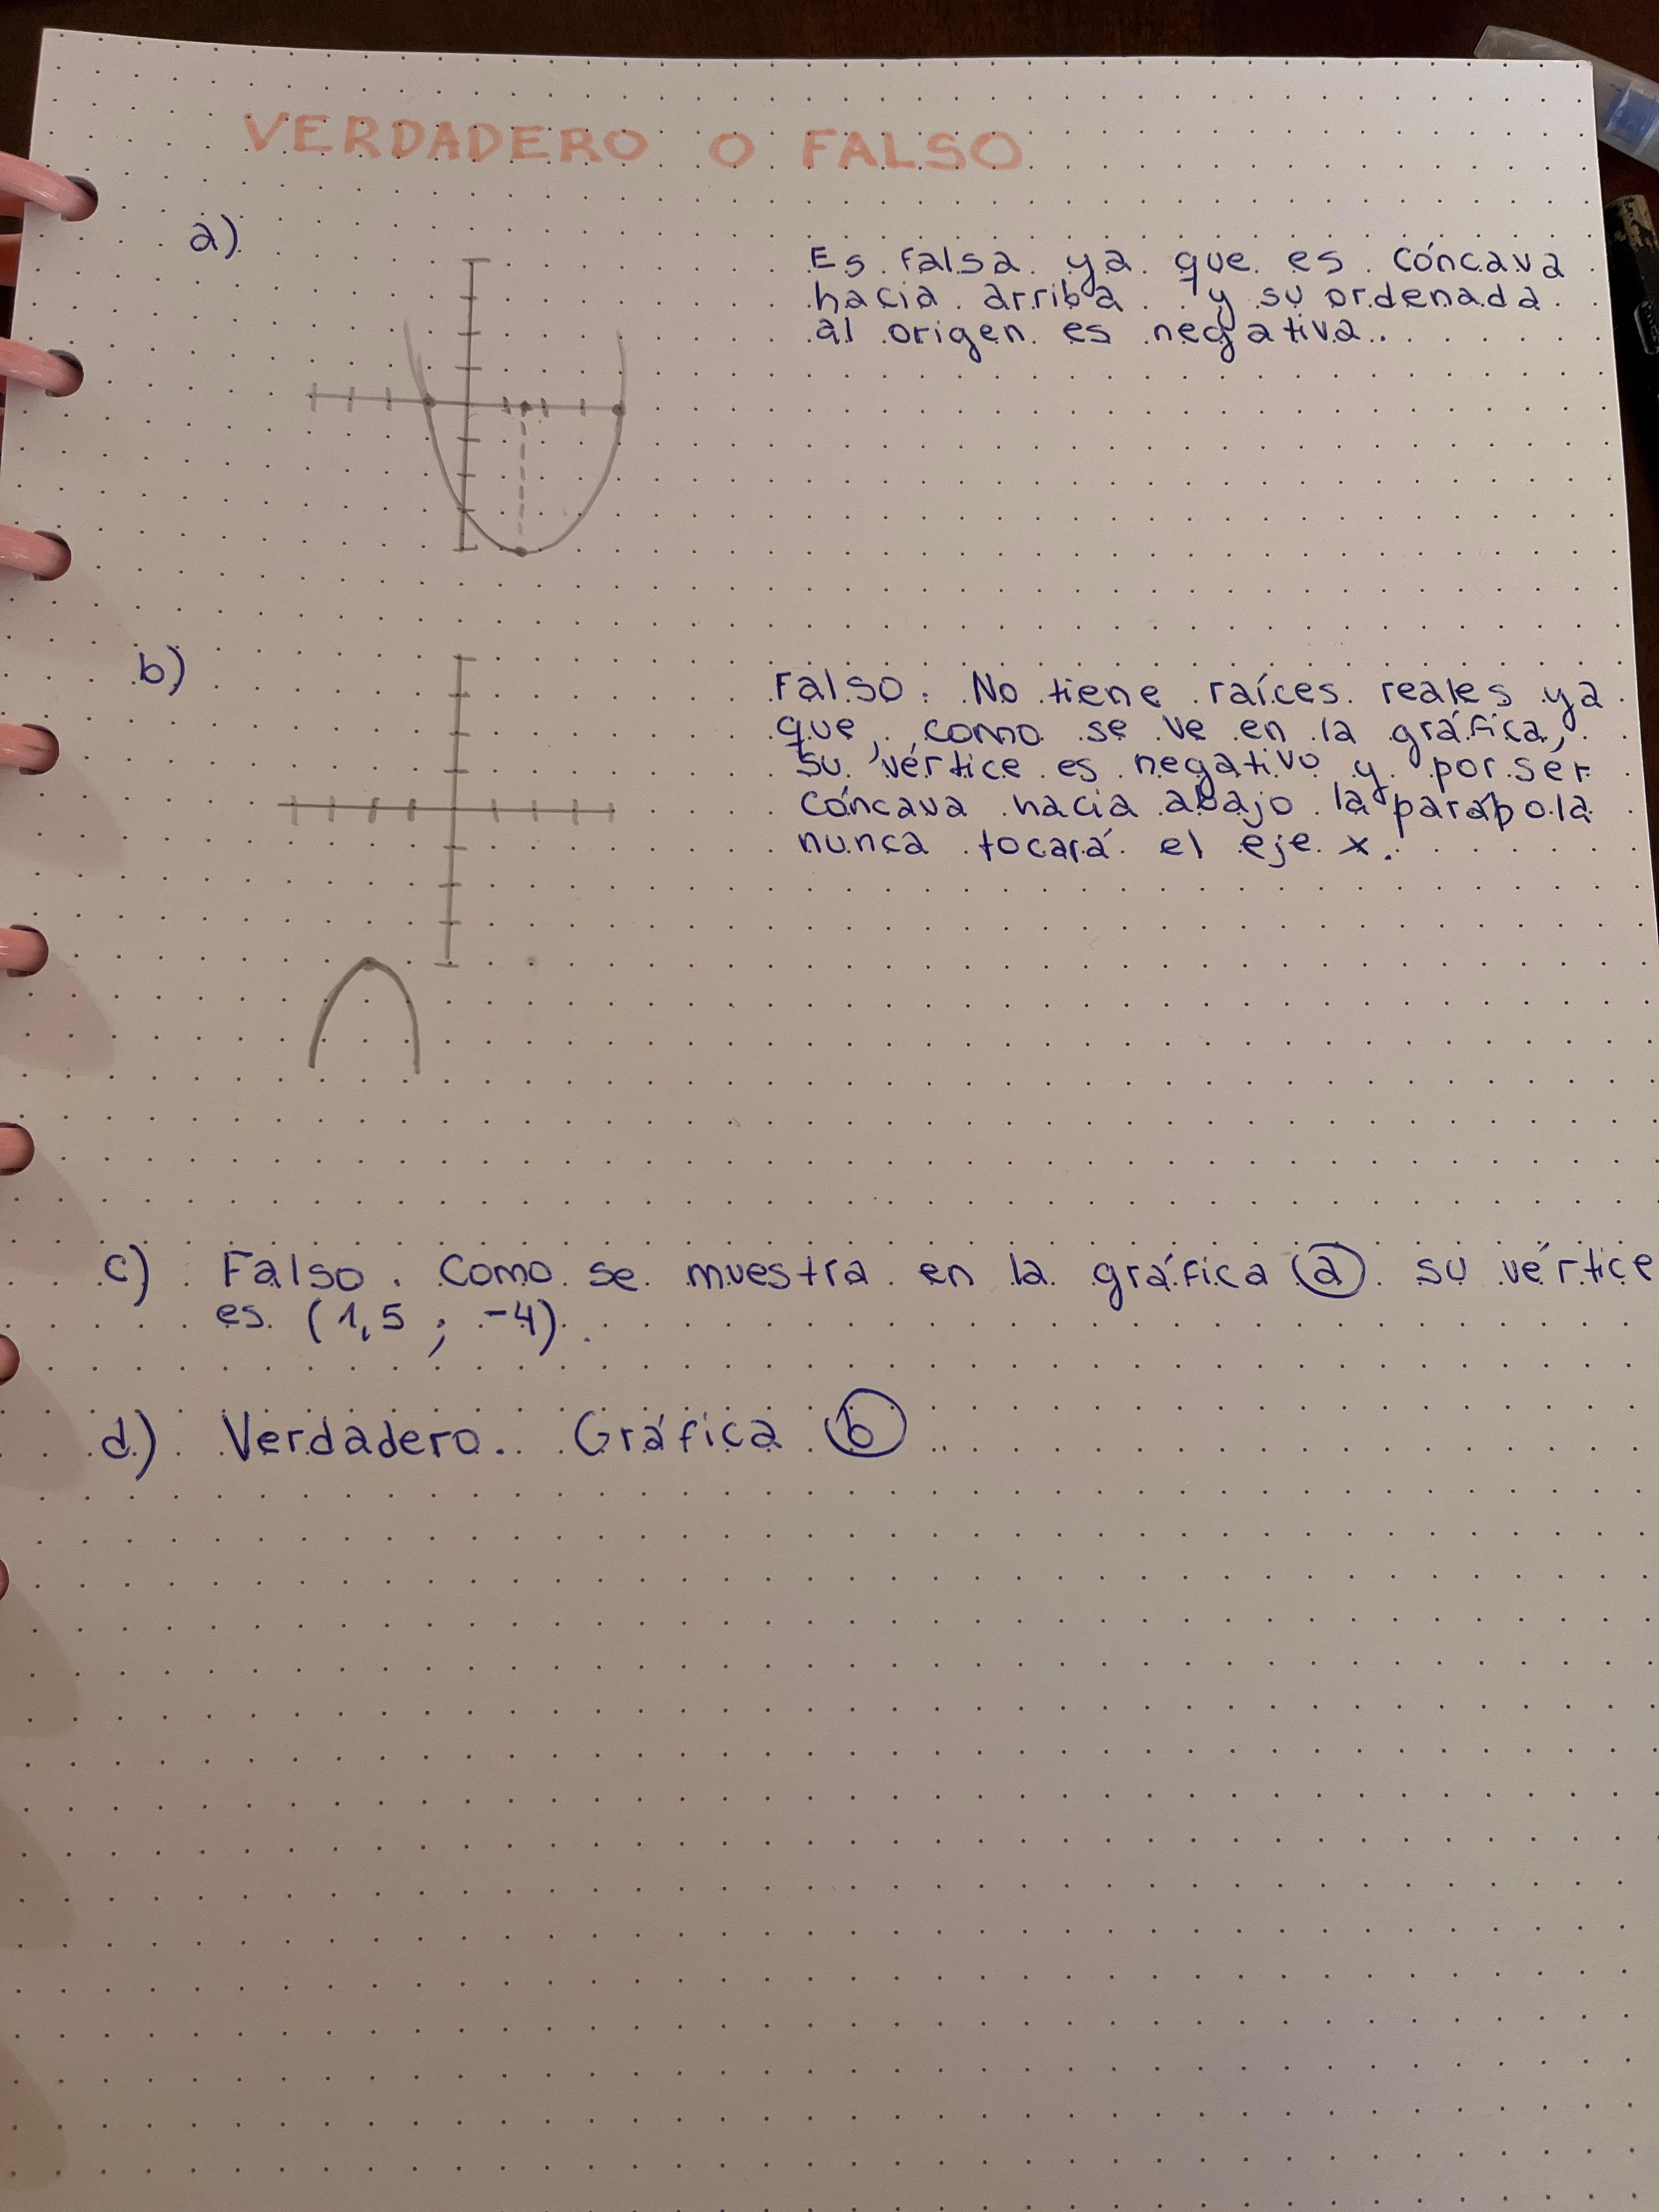 VERDADERO O FALSO
a)
Es falsa ya que es cóncava
hacia arriba y su ordenada
al origen es negativa.
b)
Falso. No tiene raíces reales ya
que, como se ve en la gráfica,
su vértice es negativo y por ser
cóncava hacia abajo la parábola
nunca tocará el eje x.
c) Falso. Como se muestra en la gráfica a su vértice
es (1,5 ; -4).
d) Verdadero. Gráfica b.